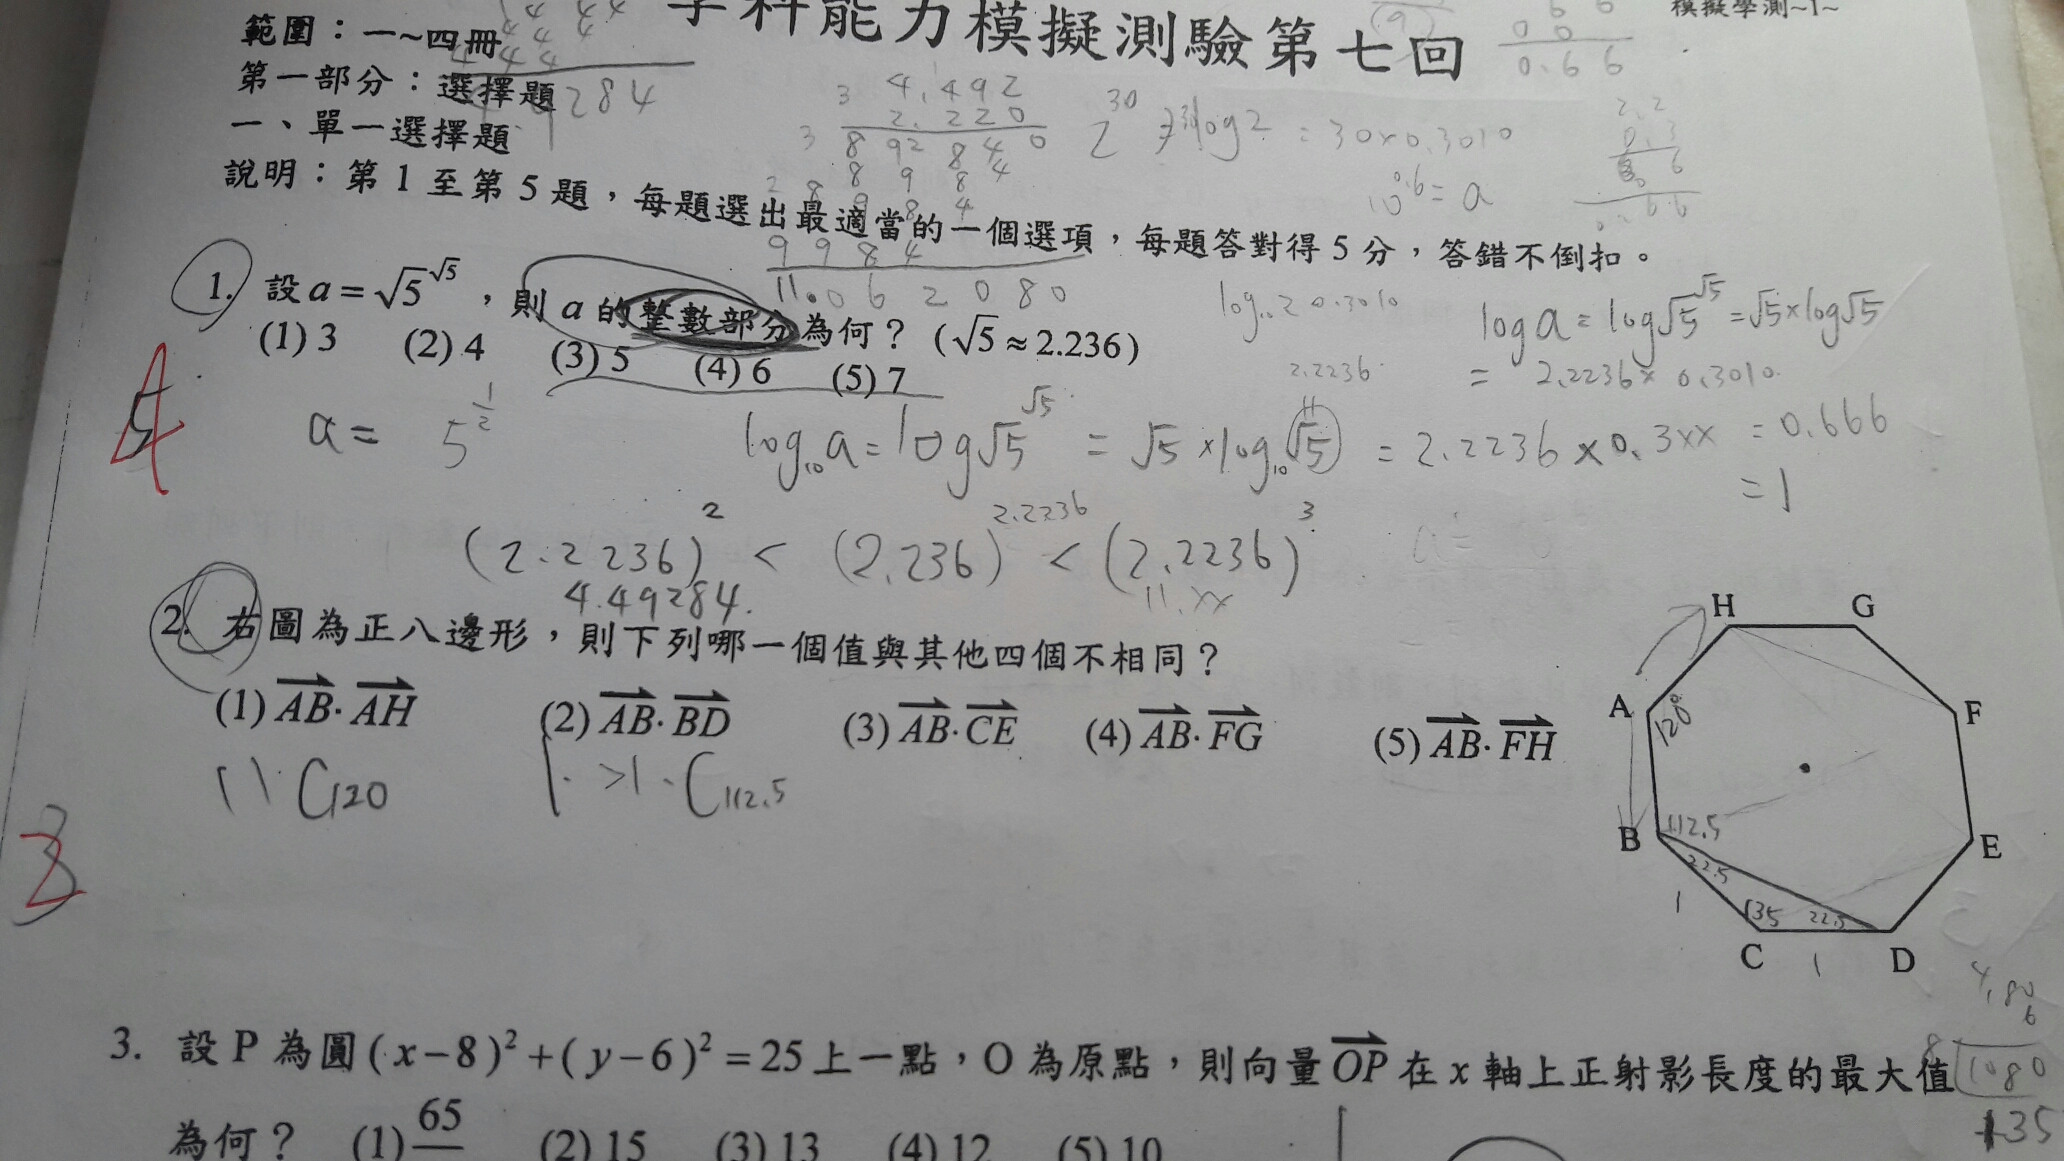 學科能力模擬測驗第七回
模擬學測~1~
範圍：一~四冊
第一部分：選擇題
一、單一選擇題
說明：第 1 至第 5 題，每題選出最適當的一個選項，每題答對得 5 分，答錯不倒扣。
284
4.492
2.220
0.66
2^30
= 30×0.3010
10^0.6 = a
11.062080
1. 設 a = √5^√5，則 a 的整數部分為何？(√5≈2.236)
(1) 3 (2) 4 (3) 5 (4) 6 (5) 7
log₁₀2 0.3010
log a = log√5^√5 = √5×log√5
2.2236
= 2.2236× 0.3010
a = 5^(1/2)
log₁₀a = log√5^√5 = √5×log₁₀√5 = 2.2236×0.3xx = 0.666
= 1
(2.2236)^2 < (2.236)^2.2236 < (2.2236)^3
4.49284.
11.xx
2. 右圖為正八邊形，則下列哪一個值與其他四個不相同？
(1) AB·AH (2) AB·BD (3) AB·CE (4) AB·FG (5) AB·FH
C120
1· >1·C112.5
H G
A F
120°
B E
112.5
22.5
1
135 22.5
C D
1
3. 設 P 為圓 (x−8)²+(y−6)²=25 上一點，O 為原點，則向量 OP 在 x 軸上正射影長度的最大值
為何？ (1) 65 (2) 15 (3) 13 (4) 12 (5) 10
8
1080
135